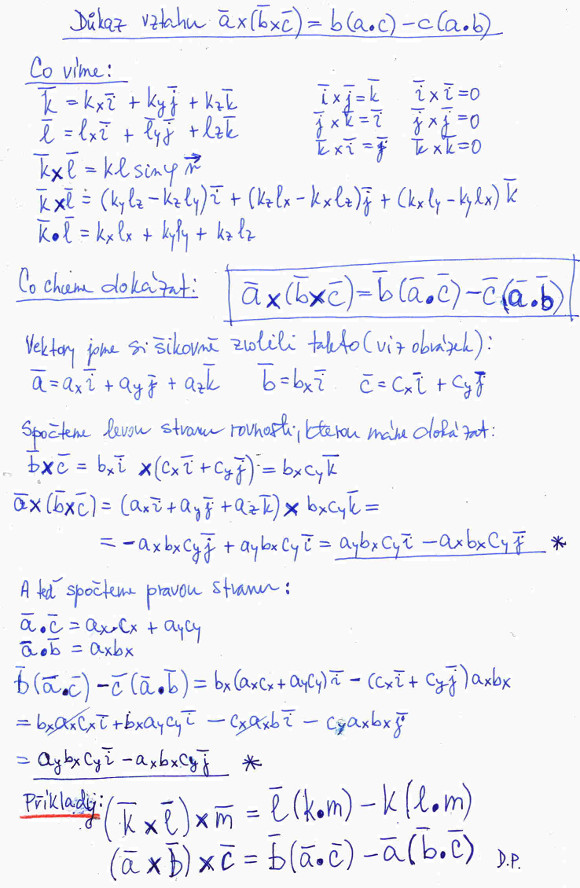 Důkaz vztahu a̅×(b̅×c̅) = b(a.c) − c(a.b)
Co víme:
k̅ = kxi̅ + kyj̅ + kzk̅
l̅ = lxi̅ + l̅yj̅ + lzk̅
i̅×j̅=k̅ i̅×i̅=0
j̅×k̅=i̅ j̅×j̅=0
k̅×i̅=j̅ k̅×k̅=0
k̅×l̅ = kl sinφ n⃗
k̅×l̅ = (kylz−kzly)i̅ + (kzlx−kxlz)j̅ + (kxly−kylx)k̅
k̅•l̅ = kxlx + kyly + kzlz
Co chceme dokázat: a̅×(b̅×c̅)=b̅(a̅.c̅)−c̅(a̅.b̅)
Vektory jsme si šikovně zvolili takto (viz obrázek):
a̅=axi̅ + ayj̅ + azk̅ b̅=bxi̅ c̅=cxi̅ + cyj̅
Spočteme levou stranu rovnosti, kterou máme dokázat:
b̅×c̅ = bxi̅ ×(cxi̅+cyj̅) = bxcyk̅
a̅×(b̅×c̅) = (axi̅+ayj̅+azk̅)× bxcyk̅ =
= −axbxcyj̅ + aybxcyi̅ = aybxcyi̅ − axbxcyj̅ *
A teď spočteme pravou stranu:
a̅.c̅ = ax.cx + aycy
a̅.b̅ = axbx
b̅(a̅.c̅)−c̅(a̅.b̅) = bx(axcx+aycy)i̅ − (cxi̅+cyj̅)axbx
= bxaxcxi̅+bxaycyi̅ − cxaxbxi̅ − cyaxbxj̅
= aybxcyi̅ − axbxcyj̅ *
Příklady: (k̅×l̅)×m̅ = l̅(k.m) − k(l.m)
(a̅×b̅)×c̅ = b̅(a̅.c̅) − a̅(b̅.c̅) D.P.